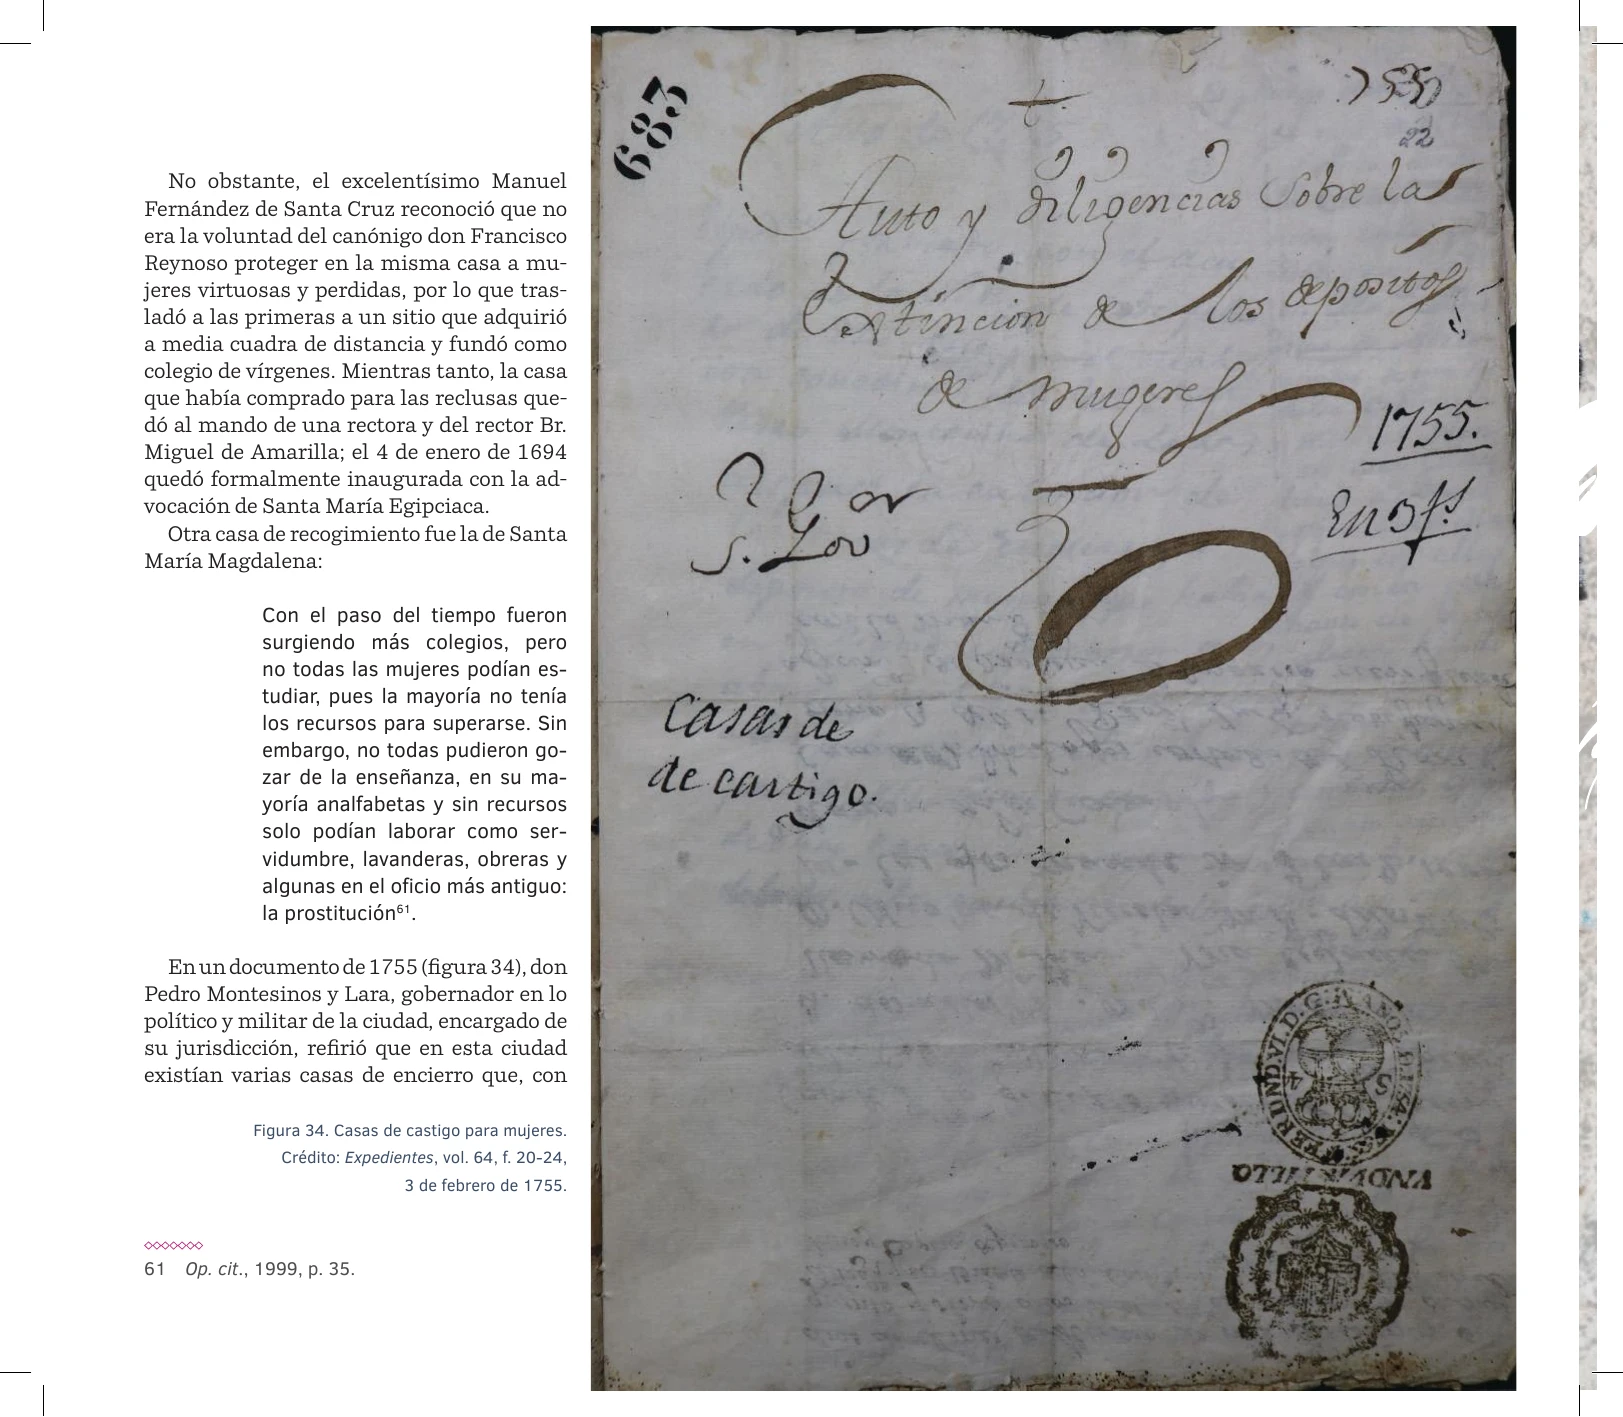 No obstante, el excelentísimo Manuel
Fernández de Santa Cruz reconoció que no
era la voluntad del canónigo don Francisco
Reynoso proteger en la misma casa a mu-
jeres virtuosas y perdidas, por lo que tras-
ladó a las primeras a un sitio que adquirió
a media cuadra de distancia y fundó como
colegio de vírgenes. Mientras tanto, la casa
que había comprado para las reclusas que-
dó al mando de una rectora y del rector Br.
Miguel de Amarilla; el 4 de enero de 1694
quedó formalmente inaugurada con la ad-
vocación de Santa María Egipciaca.
Otra casa de recogimiento fue la de Santa
María Magdalena:
Con el paso del tiempo fueron
surgiendo más colegios, pero
no todas las mujeres podían es-
tudiar, pues la mayoría no tenía
los recursos para superarse. Sin
embargo, no todas pudieron go-
zar de la enseñanza, en su ma-
yoría analfabetas y sin recursos
solo podían laborar como ser-
vidumbre, lavanderas, obreras y
algunas en el oficio más antiguo:
la prostitución⁶¹.
En un documento de 1755 (figura 34), don
Pedro Montesinos y Lara, gobernador en lo
político y militar de la ciudad, encargado de
su jurisdicción, refirió que en esta ciudad
existían varias casas de encierro que, con
Figura 34. Casas de castigo para mujeres.
Crédito: Expedientes, vol. 64, f. 20-24,
3 de febrero de 1755.
61 Op. cit., 1999, p. 35.
683
22
Auto y diligencias sobre la
Extincion de los depositos
de mugeres
1755.
En 3 fs
Casas de
de castigo.